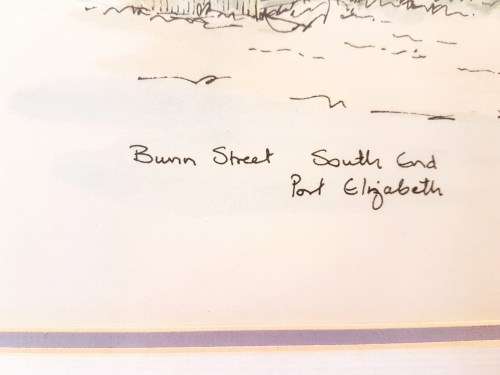 Bunn Street South End
Port Elizabeth